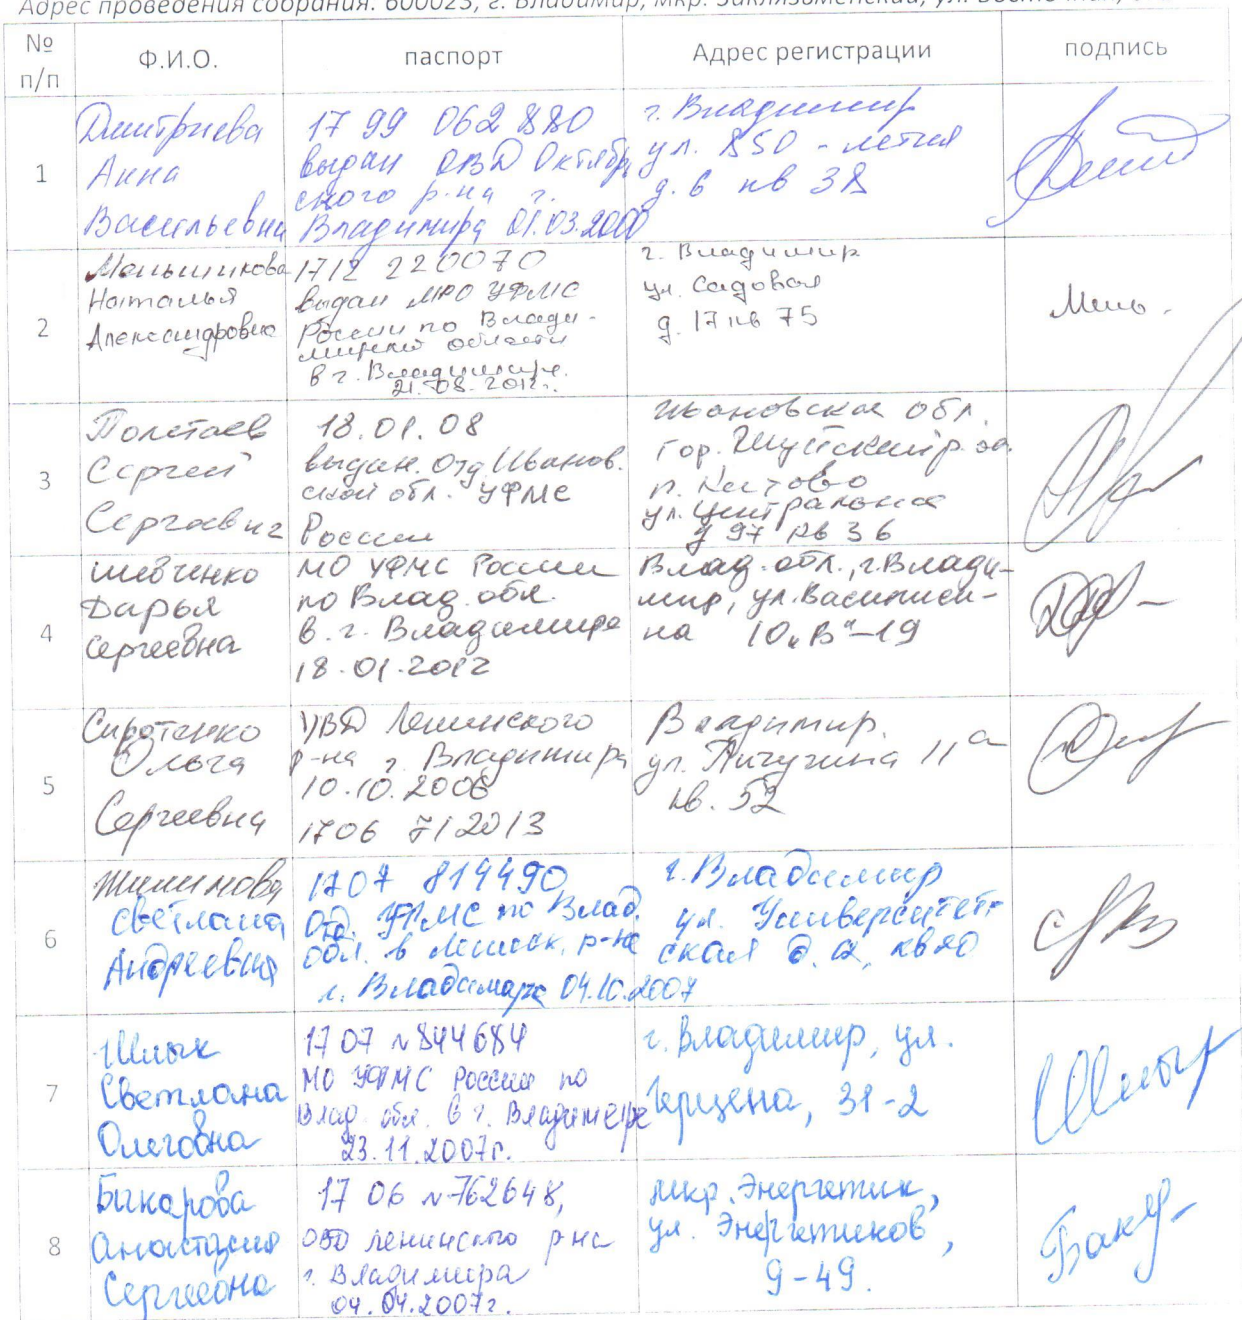 Адрес проведения собрания: 600023, г. Владимир, мкр. Заклязьменский, ул. Восточная,
№ п/п
Ф.И.О.
паспорт
Адрес регистрации
подпись
1
Дмитриева
Анна
Васильевна
17 99 062880
выдан ОВД Октябрь
ского р-на г.
Владимира 01.03.2000
г. Владимир
ул. 850-летия
д. 6 кв 38
2
Меньшикова
Наталья
Александровна
1712 220070
выдан МРО УФМС
России по Влади-
мирской области
в г. Владимире.
21.08.2012г.
г. Владимир
ул. Садовая
д. 17 кв 75
Мень.
3
Полетаев
Сергей
Сергеевич
18.01.08
выдан. Отд Иванов.
ской обл. УФМС
России
Ивановская обл.
гор. Шуйский р-он
п. Китово
ул. Центральная
д 97 кв 36
4
Шевченко
Дарья
Сергеевна
МО УФМС России
по Влад. обл.
в. г. Владимире
18.01.2012
Влад. обл., г. Влади-
мир, ул. Василиси-
на 10„В"-19
5
Сиротенко
Ольга
Сергеевна
УВД Ленинского
р-на г. Владимира
10.10.2006
1706 712013
Владимир.
ул. Пичугина 11а
кв. 52
6
Светлана
Андреевна
1707 814490
Отд. УФМС по Влад.
обл. в Ленинск. р-не
г. Владимира 04.10.2007
г. Владимир
ул. Университет-
ская д. 2, кв 20
7
Шлык
Светлана
Олеговна
17 07 №844684
МО УФМС России по
Влад. обл. в г. Владимире
23.11.2007г.
г. Владимир, ул.
Герцена, 31-2
Шлык
8
Бакарова
Анастасия
Сергеевна
17 06 №762648,
ОВД Ленинского р-на
г. Владимира
04.04.2007г.
мкр. Энергетик,
ул. Энергетиков,
9-49.